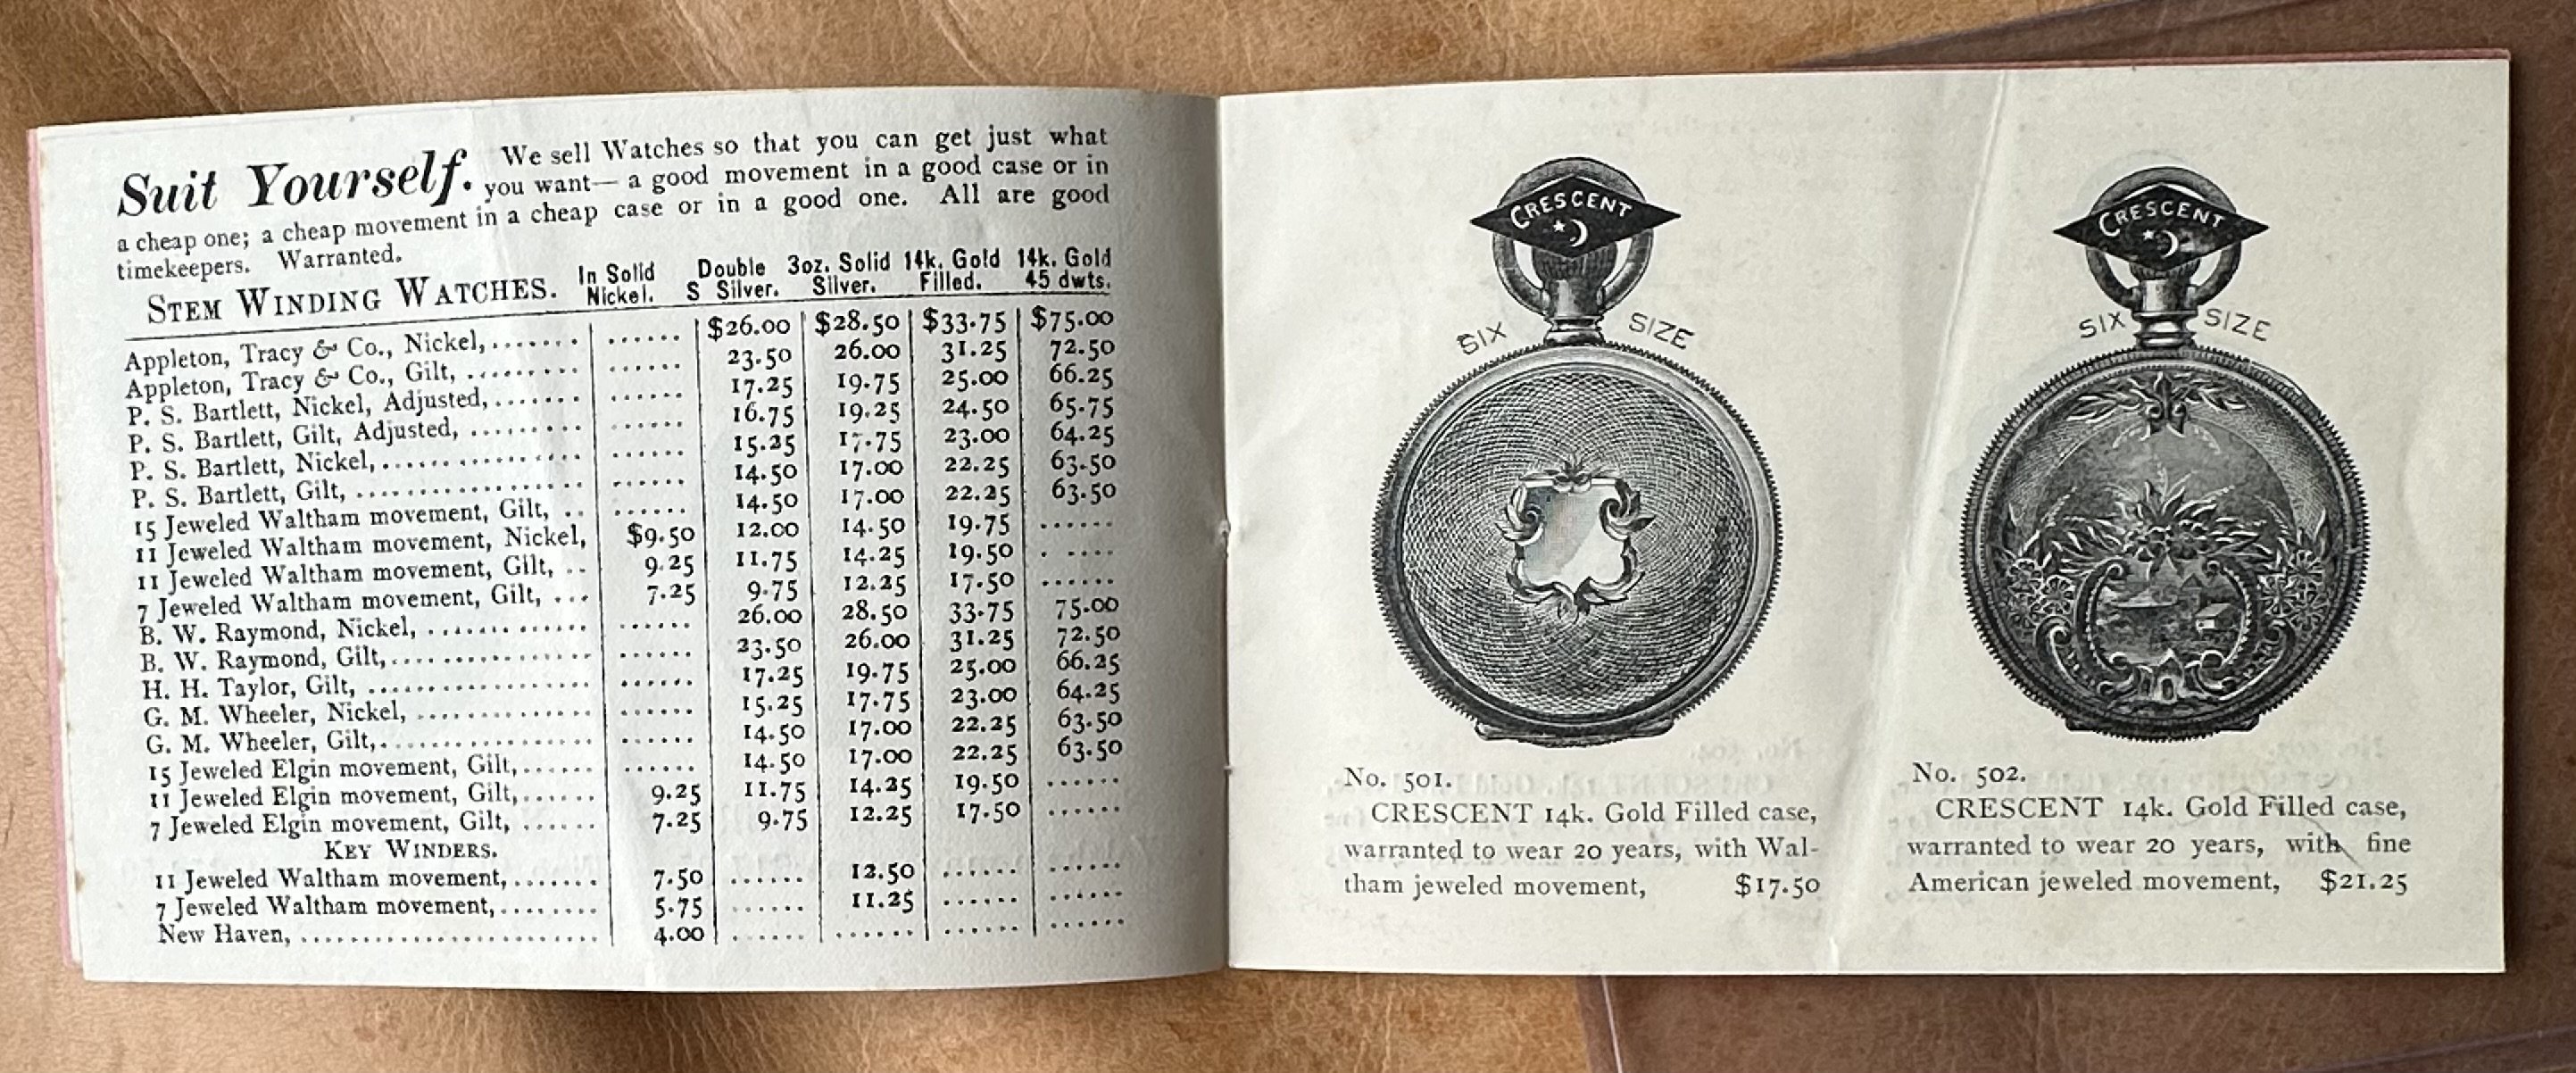 Suit Yourself. We sell Watches so that you can get just what
you want— a good movement in a good case or in
a cheap one; a cheap movement in a cheap case or in a good one. All are good
timekeepers. Warranted.
STEM WINDING WATCHES. In Solid Nickel. Double S Silver. 3oz. Solid Silver. 14k. Gold Filled. 14k. Gold 45 dwts.
Appleton, Tracy & Co., Nickel,....... ...... $26.00 $28.50 $33.75 $75.00
Appleton, Tracy & Co., Gilt, ......... ...... 23.50 26.00 31.25 72.50
P. S. Bartlett, Nickel, Adjusted,....... ...... 17.25 19.75 25.00 66.25
P. S. Bartlett, Gilt, Adjusted, ......... ...... 16.75 19.25 24.50 65.75
P. S. Bartlett, Nickel,................ ...... 15.25 17.75 23.00 64.25
P. S. Bartlett, Gilt, .................. ...... 14.50 17.00 22.25 63.50
15 Jeweled Waltham movement, Gilt, .. ...... 14.50 17.00 22.25 63.50
11 Jeweled Waltham movement, Nickel, $9.50 12.00 14.50 19.75 ......
11 Jeweled Waltham movement, Gilt, .. 9.25 11.75 14.25 19.50 . ....
7 Jeweled Waltham movement, Gilt, ... 7.25 9.75 12.25 17.50 ......
B. W. Raymond, Nickel, ............. ...... 26.00 28.50 33.75 75.00
B. W. Raymond, Gilt,................ ...... 23.50 26.00 31.25 72.50
H. H. Taylor, Gilt, .................. ...... 17.25 19.75 25.00 66.25
G. M. Wheeler, Nickel, .............. ...... 15.25 17.75 23.00 64.25
G. M. Wheeler, Gilt,................. ...... 14.50 17.00 22.25 63.50
15 Jeweled Elgin movement, Gilt,...... ...... 14.50 17.00 22.25 63.50
11 Jeweled Elgin movement, Gilt,...... 9.25 11.75 14.25 19.50 ......
7 Jeweled Elgin movement, Gilt, ...... 7.25 9.75 12.25 17.50 ......
KEY WINDERS.
11 Jeweled Waltham movement,....... 7.50 ...... 12.50 ...... ......
7 Jeweled Waltham movement,........ 5.75 ...... 11.25 ...... ......
New Haven, ......................... 4.00 ...... ...... ...... ......
CRESCENT
SIX SIZE
No. 501.
CRESCENT 14k. Gold Filled case,
warranted to wear 20 years, with Wal-
tham jeweled movement, $17.50
CRESCENT
SIX SIZE
No. 502.
CRESCENT 14k. Gold Filled case,
warranted to wear 20 years, with fine
American jeweled movement, $21.25